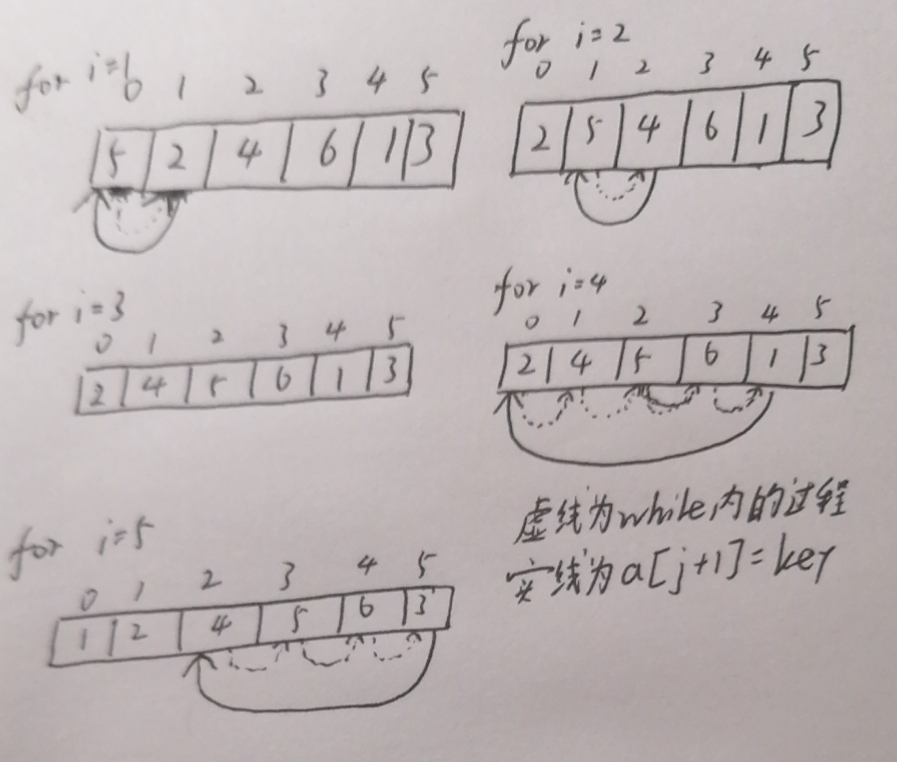 for i=1
0 1 2 3 4 5
5 2 4 6 1 3
for i=2
0 1 2 3 4 5
2 5 4 6 1 3
for i=3
0 1 2 3 4 5
2 4 5 6 1 3
for i=4
0 1 2 3 4 5
2 4 5 6 1 3
for i=5
0 1 2 3 4 5
1 2 4 5 6 3
虚线为while内的过程
实线为a[j+1]=key